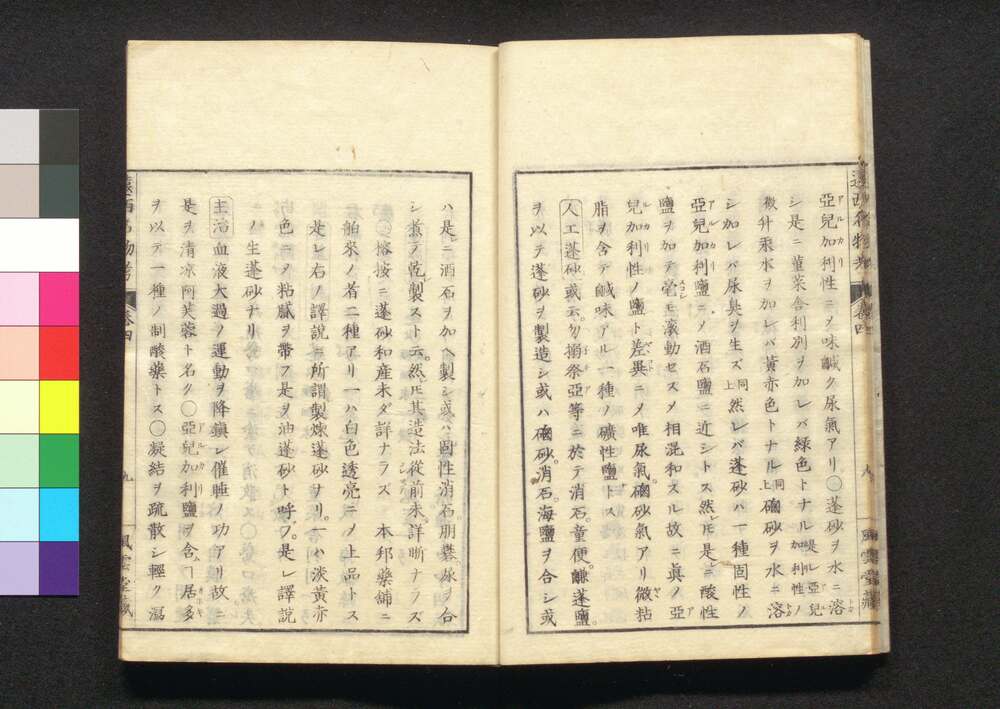 亞兒加利性ニㇱテ味鹹ク尿氣アリ〇蓬砂ヲ水ニ溶
シ是ニ菫菜舎利別ヲ加レバ緑色トナル是レ亞兒加利性ノ
微升汞水ヲ加レバ黄赤色トナル同上磠砂ヲ水ニ溶
シ加レバ尿臭ヲ生ズ同上然レバ蓬砂ハ一種固性ノ
亞兒加利性鹽ニㇱテ酒石鹽ニ近シトス然𪜈是ニ酸性
鹽ヲ加テ毫モ滾動セスㇱテ相混和スル故ニ眞ノ亞
兒加利性ノ鹽ト差異ニㇱテ唯尿氣磠砂氣アリ微粘
脂ヲ含テ鹹味アル一種ノ礦性鹽トス
人工蓬砂或云勿搦祭亞等ニ於テ消石童便鹻蓬鹽
ヲ以テ蓬砂ヲ製造シ或ハ磠砂消石海鹽ヲ合シ或
遠西名物考 卷四 風雲堂藏
ハ是ニ酒石ヲ加ヘ製シ或ハ固性消石朋 ヲ合
シ煮テ乾製スト云然𪜈其造法從前未詳晰ナラズ
〇榕按ニ蓬砂和産未ダ詳ナラズ 本邦藥舗ニ
舶來ノ者二種アリ一ハ白色透亮ニㇱテ上品トス
是レ右ノ譯説ニ所謂製煉蓬砂ナリ一ハ淡黄赤
色ニㇱテ粘膩ヲ帶フ是ヲ油蓬砂ト呼フ是レ譯説
ニノ生蓬砂ナリ
主治血液大過ノ運動ヲ降鎮シ催睡ノ功アリ故ニ
是ヲ清凉阿芙蓉ト名ク〇亞兒加利鹽ヲ含ヿ居多
ヲ以テ一種ノ制酸藥トス〇凝結ヲ疏散シ輕ク瀉
遠西名物考 卷四 九 風雲堂藏